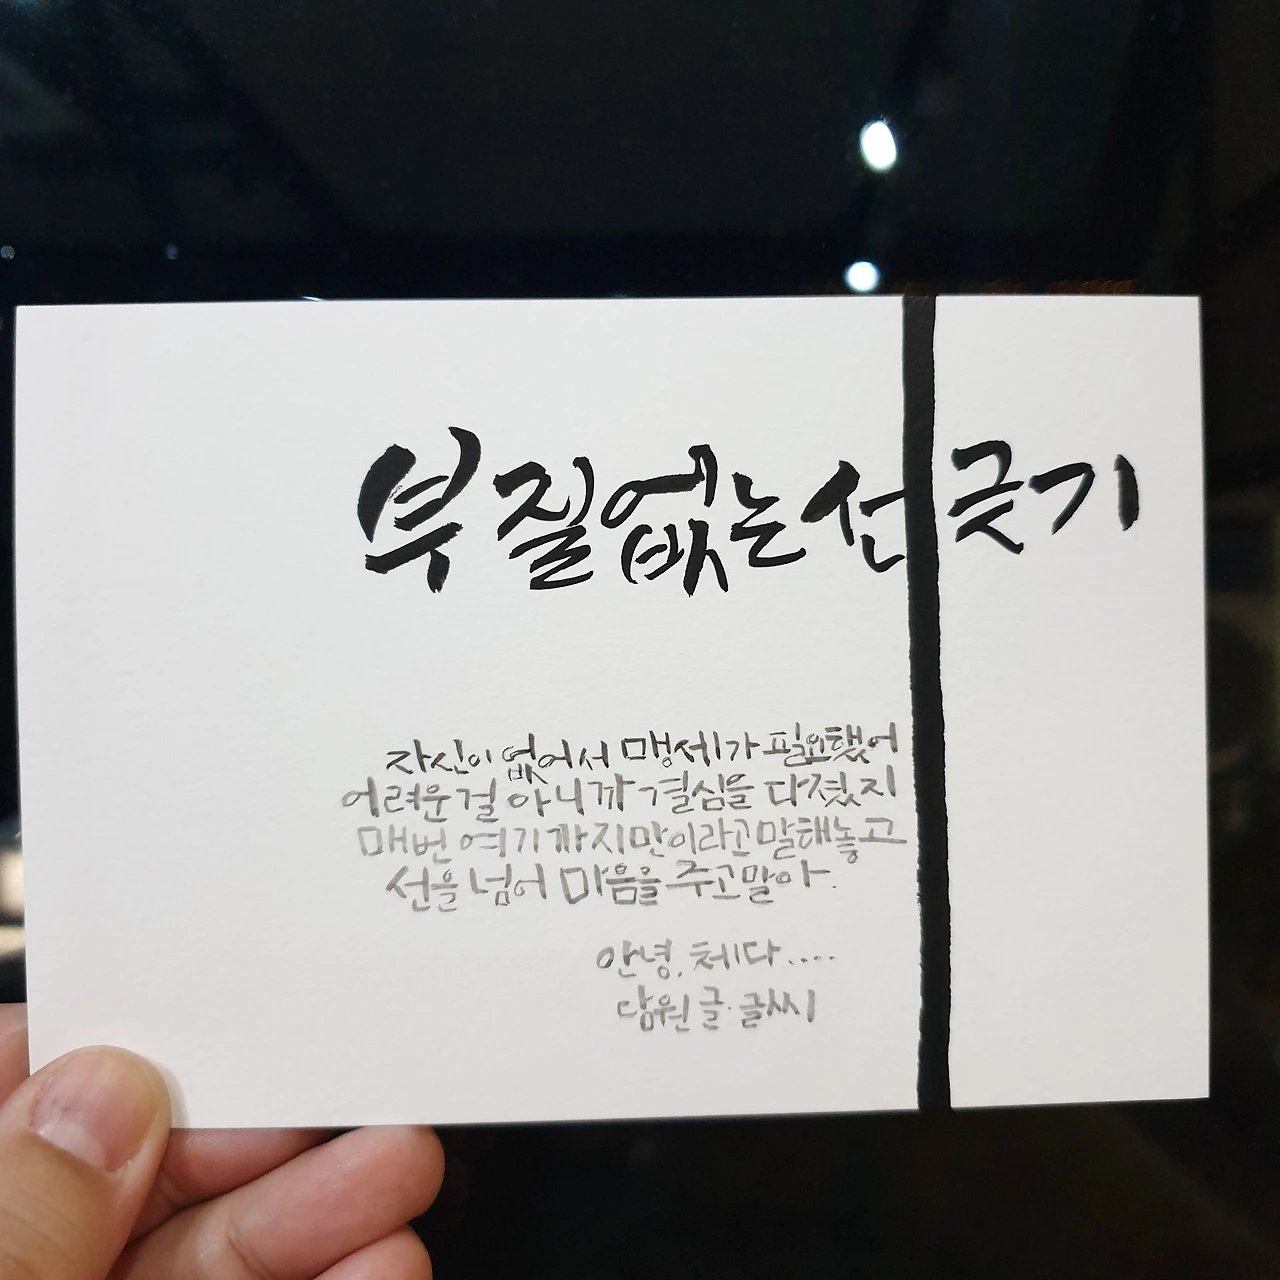 부질없는 선 긋기
자신이 없어서 맹세가 필요했어
어려운 걸 아니까 결심을 다졌지
매번 여기까지만이라고 말해놓고
선을 넘어 마음을 주고말아.
안녕, 체다....
담원 글·글씨